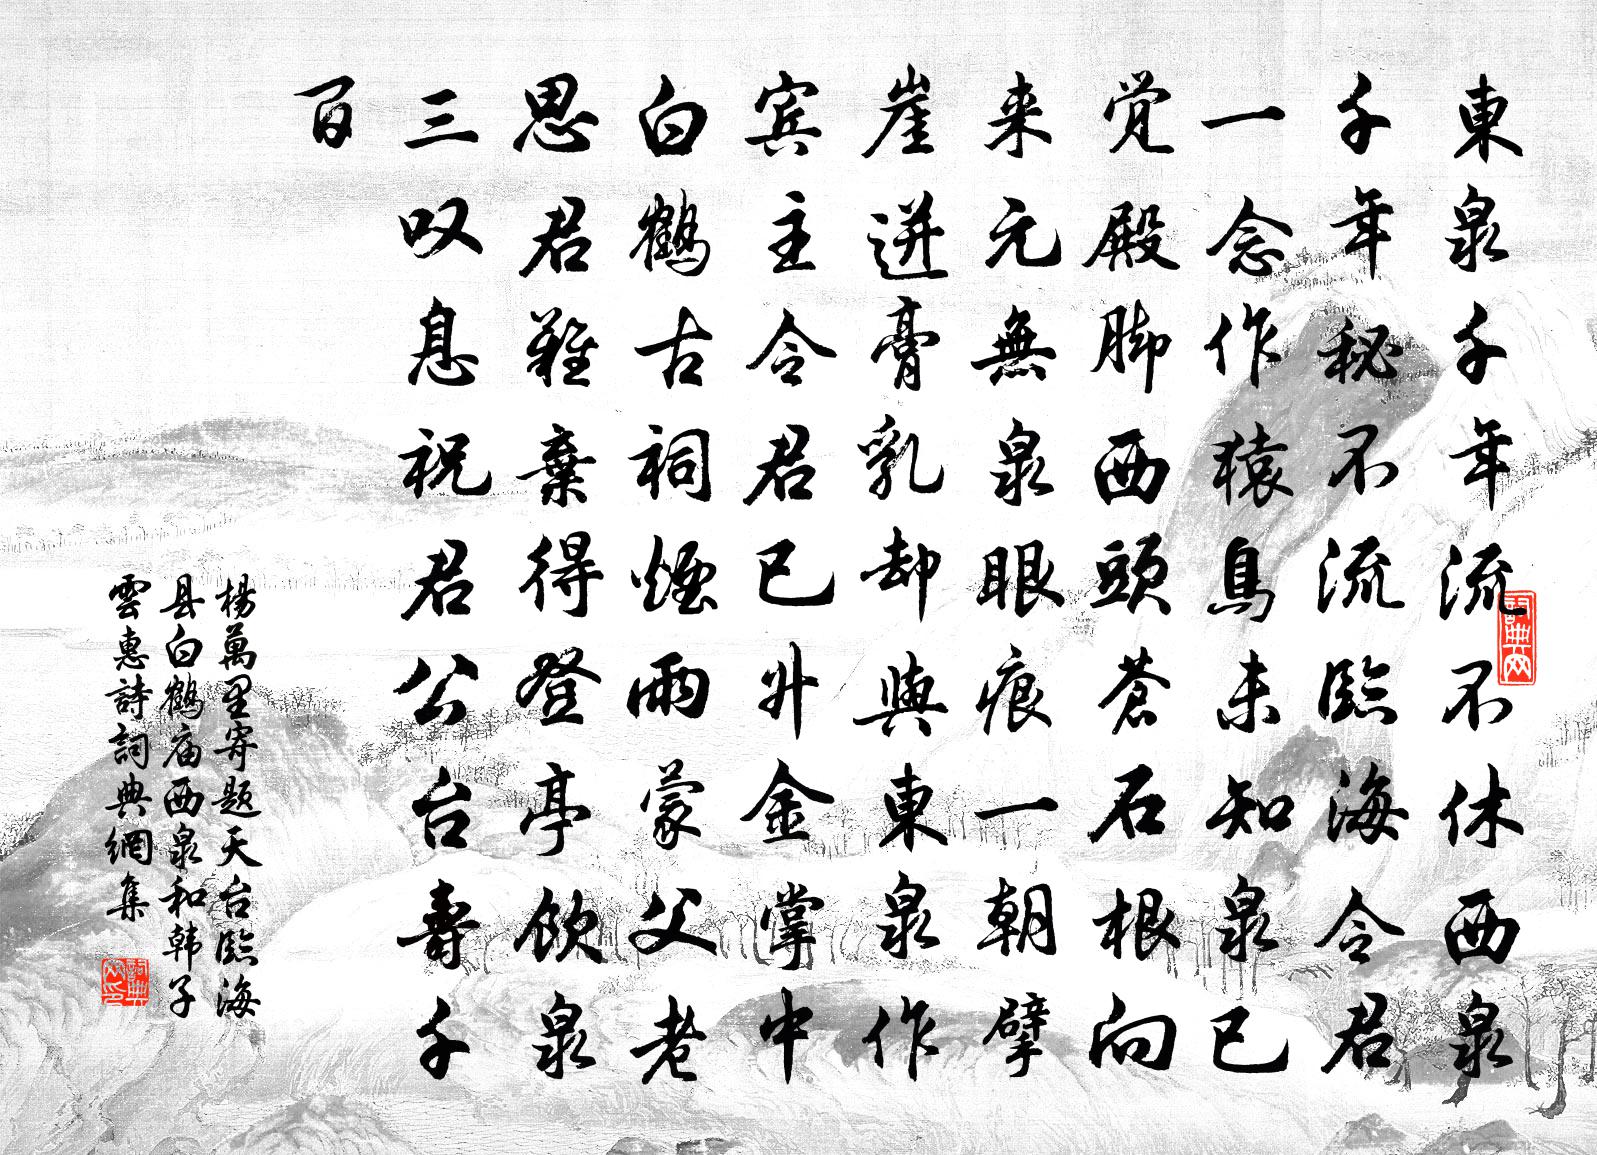 東泉千年流不休西泉
千年秘不流臨海令君
一念作猿鳥未知泉已
觉殿脚西頭蒼石根向
来元無泉眼痕一朝擘
崖迸膏乳却與東泉作
宾主令君已升金掌中
白鶴古祠煙雨蒙父老
思君難棄得登亭飲泉
三叹息祝君公台壽千
百
楊萬里寄题天台臨海
县白鶴庙西泉和韩子
雲惠詩詞典網集
詞典网
詞典网印